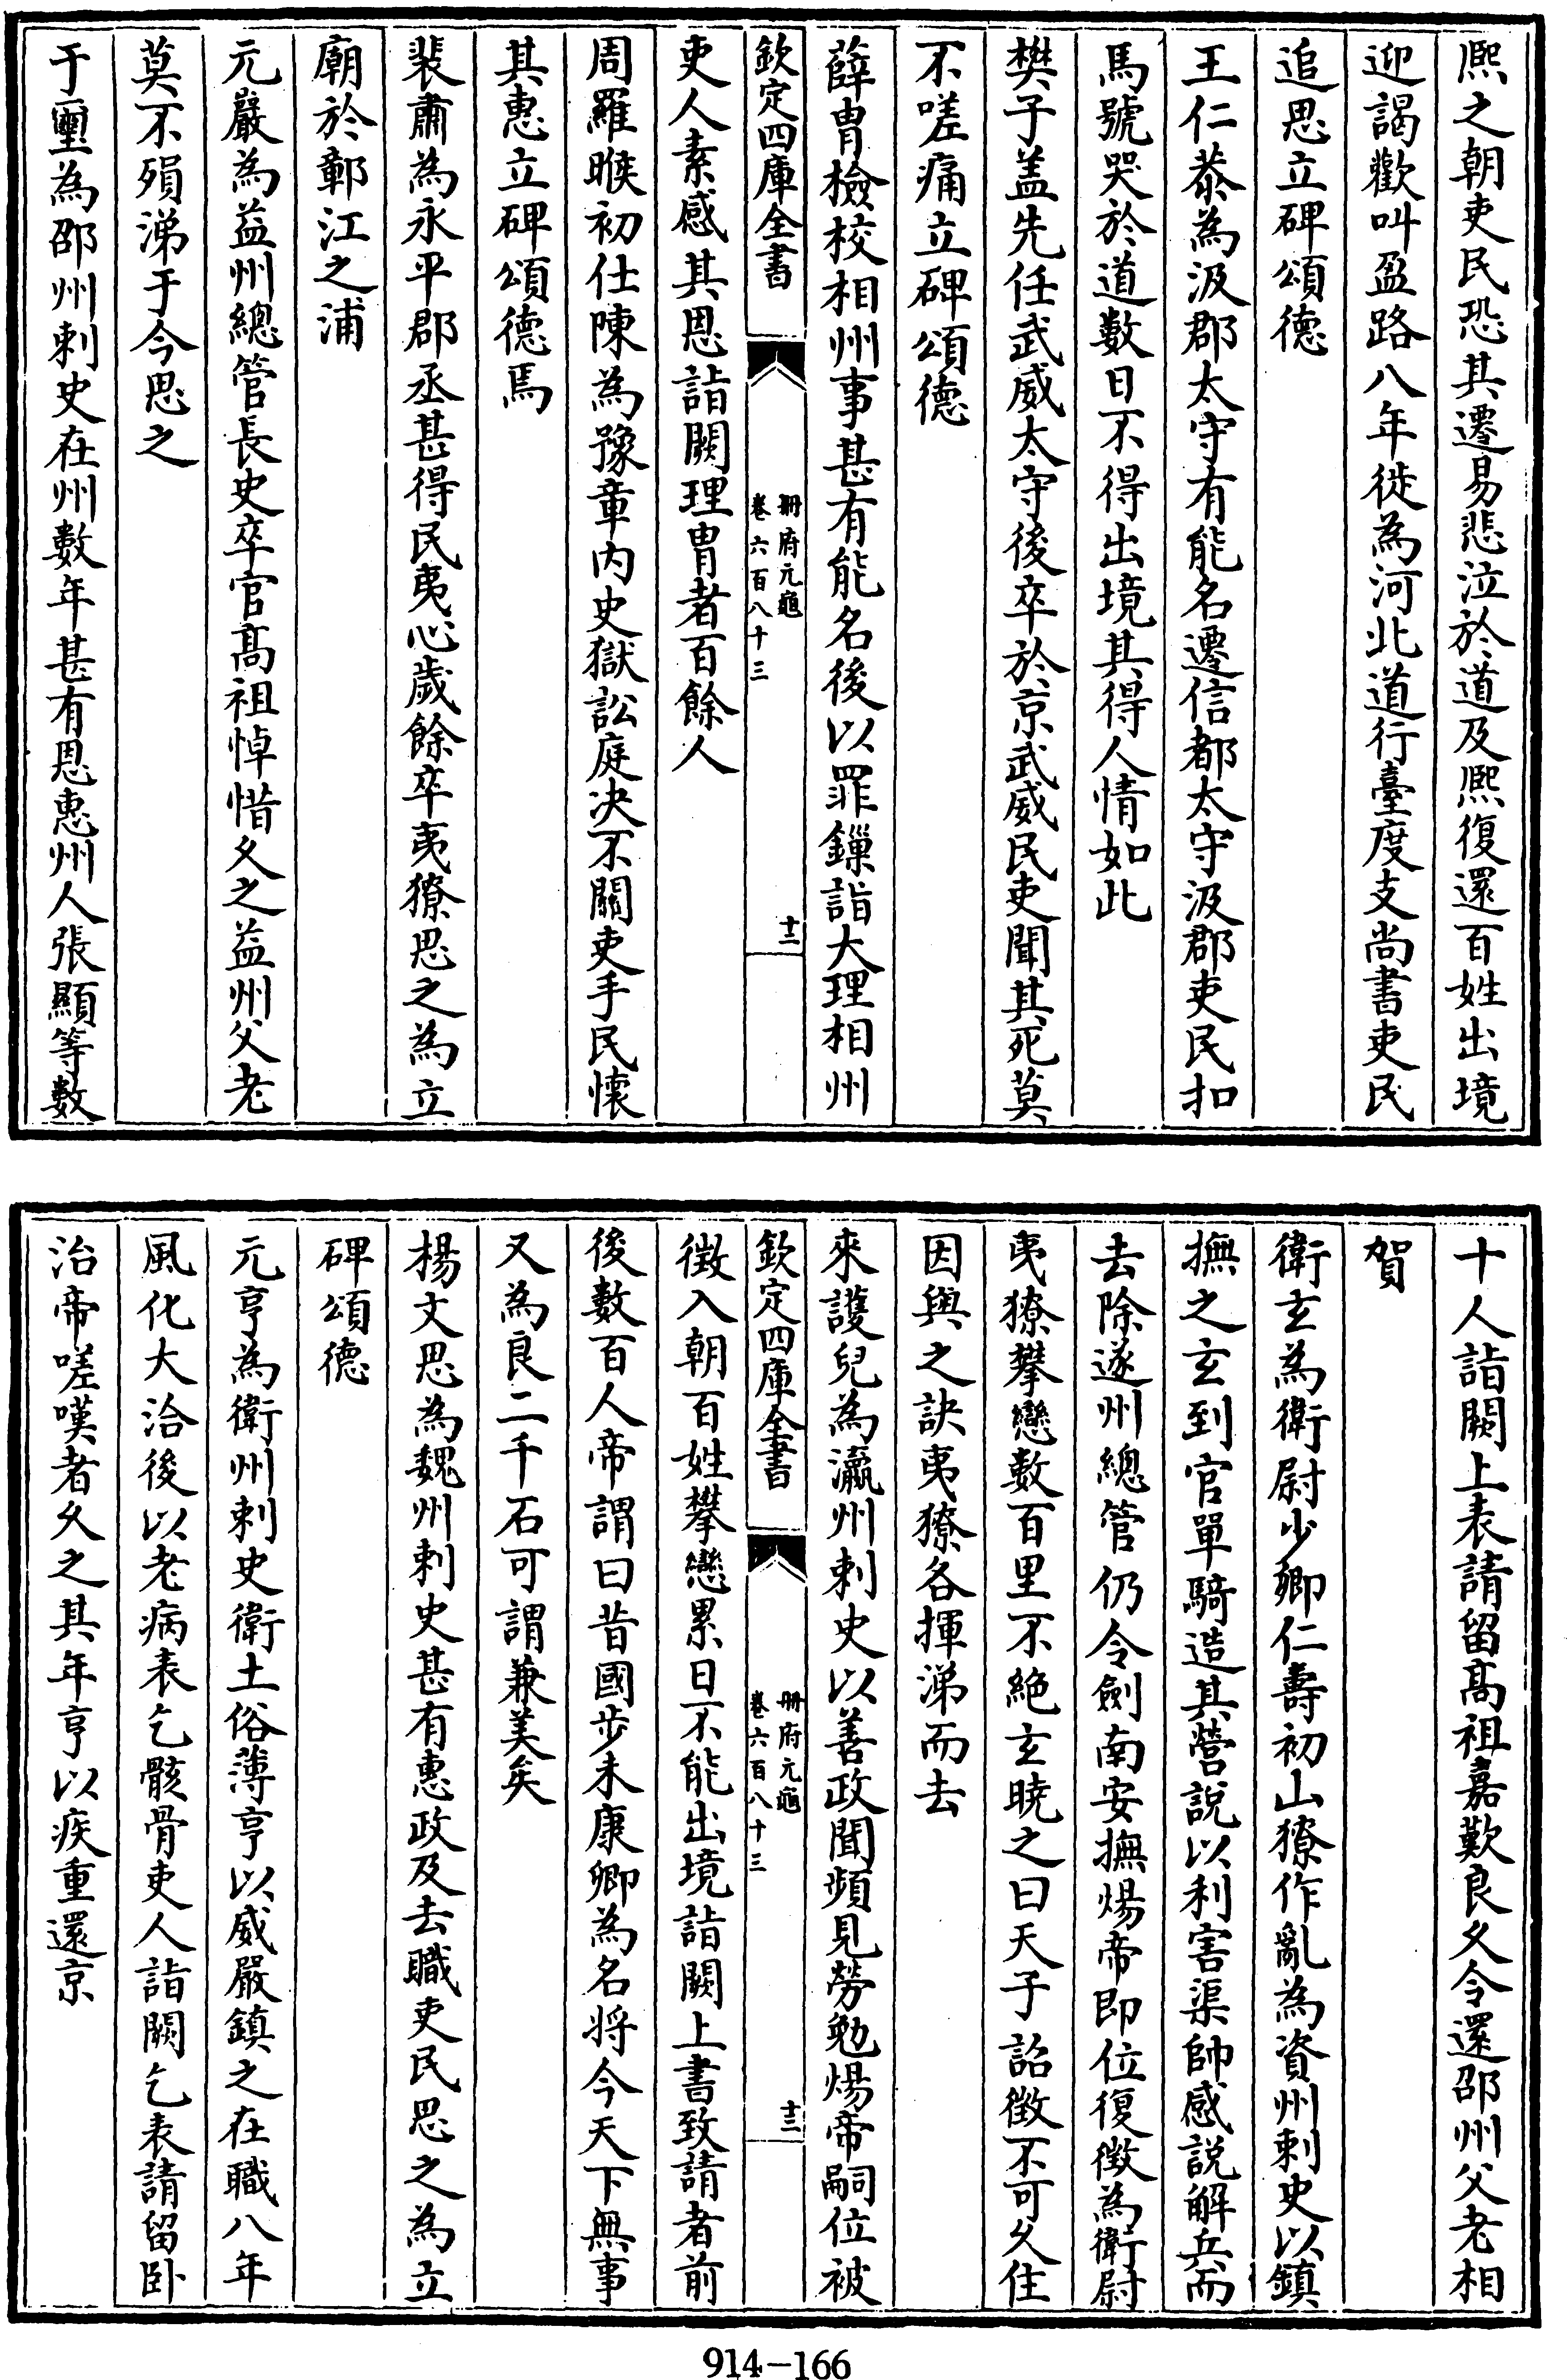 熈之朝吏民恐其遷易悲泣於道及熈復還百姓出境
迎謁歡叫盈路八年徙為河北道行臺度支尚書吏民
追思立碑頌德
王仁恭為汲郡太守有能名遷信都太守汲郡吏民扣
馬號哭於道數日不得出境其得人情如此
樊子盖先任武威太守後卒於京武威民吏聞其死莫
不嗟痛立碑頌德
薛胄檢校相州事甚有能名後以罪鏁詣大理相州
欽定四庫全書
冊府元龜
卷六百八十三
十二
吏人素感其恩詣闕理胄者百餘人
周羅㬋初仕陳為豫章内史獄訟庭决不關吏手民懐
其惠立碑頌德焉
裴肅為永平郡丞甚得民夷心歲餘卒夷獠思之為立
廟於鄣江之浦
元嚴為益州總管長史卒官髙祖悼惜久之益州父老
莫不殞涕于今思之
于璽為邵州刺史在州數年甚有恩惠州人張顯等數
十人詣闕上表請留髙祖嘉歎良久令還邵州父老相
賀
衛玄為衛尉少卿仁壽初山獠作亂為資州刺史以鎮
撫之玄到官單騎造其營説以利害渠帥感説解兵而
去除遂州總管仍令劍南安撫煬帝即位復徴為衛尉
夷獠攀戀數百里不絶玄曉之曰天子詔徴不可久住
因與之訣夷獠各揮涕而去
來護兒為瀛州刺史以善政聞頻見勞勉煬帝嗣位被
欽定四庫全書
冊府元龜
卷六百八十三
十三
徴入朝百姓攀戀累日不能出境詣闕上書致請者前
後數百人帝謂曰昔國步未康卿為名将今天下無事
又為良二千石可謂兼美矣
楊文思為魏州刺史甚有惠政及去職吏民思之為立
碑頌德
元亨為衛州刺史衛土俗薄亨以威嚴鎮之在職八年
風化大洽後以老病表乞骸骨吏人詣闕乞表請留卧
治帝嗟嘆者久之其年亨以疾重還京
914-166